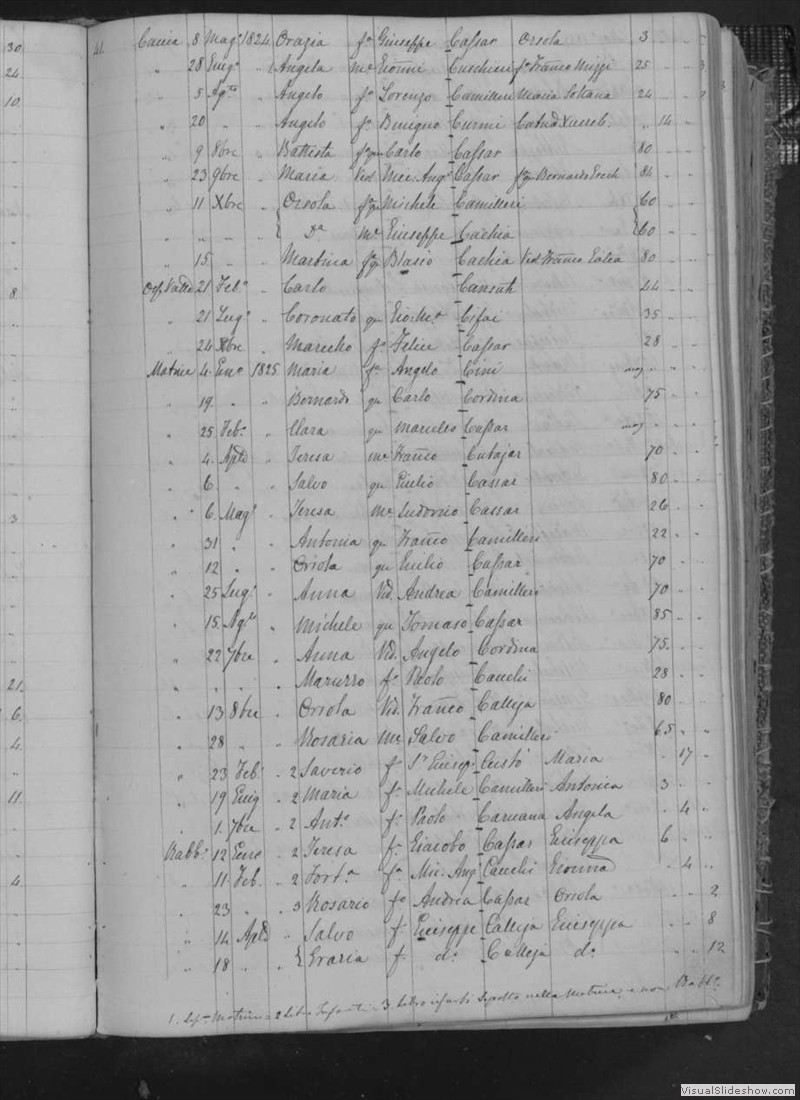 30
24
10
8
3
21
6
4
11
4
41. Caccia 8 Magº 1824 Orazia fª Giuseppe Cassar Orsola 3 " "
" 28 Giugº " Angela Mᵉ Gionñi Cuschieri fª Franco Mizzi 25 " 3
" 5 Agᵗᵒ " Angelo fº Lorenzo Camilleri Maria Soltana 24 " 7
" 20 " " Angelo fº Benigno Curmi " 14 "
" 9 8bre " Battista fº qu Carlo Cassar 80
" 23 9bre " Maria Vid Mic: Angº Cassar fª qu Bernardo 84
" 11 Xbre " { Orsola fª qu Michele Camilleri { 60
" " " " { Dª Mᵉ Giuseppe Cachia { 60
" 15 " " Martina fª qu Blasio Cachia Vid Franco 80
21 Febº " Carlo 44
" 21 Lugº " Coronato qu Cifai 35
" 24 Xbre " fº Felice Cassar 28
Matrice 4 Enº 1825 Maria fª Angelo Cini mag
" 19 " " Bernardo qu Carlo Cordina 75 " "
" 25 Febº " Clara qu Cassar mag " "
" 4 Aple " Teresa mᵉ Franco Cutajar 70 " "
" 6 " " Salvo qu Giulio Cassar 80 " "
" 6 Magº " Teresa Mᵉ Ludovico Cassar 26 " "
" 31 " " Antonia qu Franco Camilleri 22 " "
" 12 " " Orsola qu Giulio Cassar 70 " "
" 25 Lugº " Anna Vid. Andrea Camilleri 70 " "
" 15 Agᵗᵒ " Michele qu Tomaso Cassar 85 " "
" 22 7bre " Anna Vid. Angelo Cordina 75 " "
" " " " fº Paolo Cauchi 28 " "
" 13 8bre " Orsola Vid. Franco Calleja 80 " "
" 28 " " Rosaria Mᵉ Salvo Camilleri 65 " "
" 23 Feb. " 2 Saverio fº Sʳ Giusep: Custó Maria " 17 "
" 19 Giug " 2 Maria fª Michele Camilleri Antonica 3 " "
" 1. 7bre " 2 Antº fº Paolo Caruana Angela " 4 "
Rabbº 12 Enº " 2 Teresa fª Giacobo Cassar Giuseppa 6 " "
" 11 Feb. " 2 Fortª fª Mic. Ang Cauchi Gionna " 4 "
" 23 " " 3 Rosario fº Andrea Cassar Orsola " " 2
" 14 Aple " Salvo fº Giuseppe Calleja Giuseppa " " 8
" 18 " " { Grazia fª dº Calleja dª " " 12
1. Matrice = 2 Libro Infanti = 3 Libro infanti Sepolto nella Matrice e non Rabbº
VisualSlideshow.com